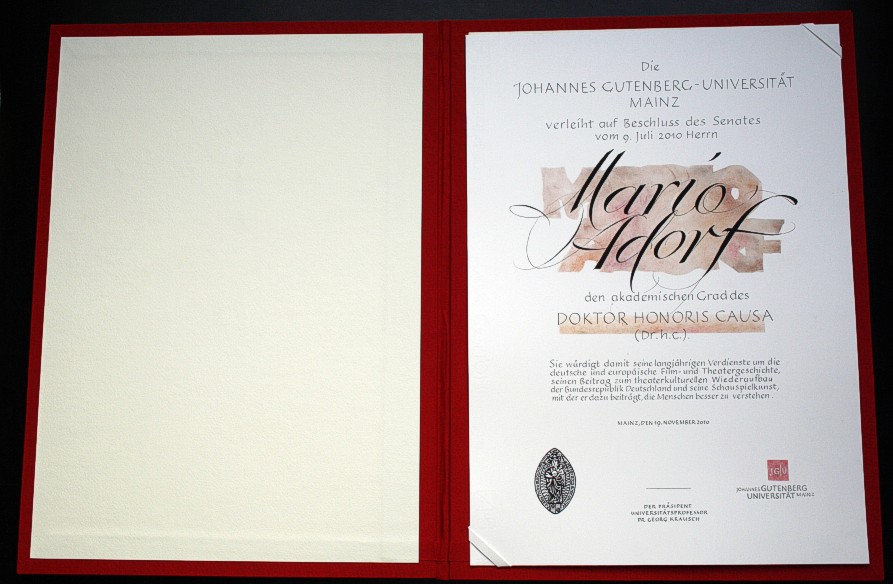 Die
JOHANNES GUTENBERG-UNIVERSITÄT
MAINZ
verleiht auf Beschluss des Senates
vom 9. Juli 2010 Herrn
MARIO
Mario
ADORF
Adorf
den akademischen Grad des
DOKTOR HONORIS CAUSA
(Dr. h.c.)
Sie würdigt damit seine langjährigen Verdienste um die
deutsche und europäische Film- und Theatergeschichte,
seinen Beitrag zum theaterkulturellen Wiederaufbau
der Bundesrepublik Deutschland und seine Schauspielkunst,
mit der er dazu beiträgt, die Menschen besser zu verstehen.
MAINZ, DEN 19. NOVEMBER 2010
DER PRÄSIDENT
UNIVERSITÄTSPROFESSOR
DR. GEORG KRAUSCH
JG|U
JOHANNES GUTENBERG
UNIVERSITÄT MAINZ